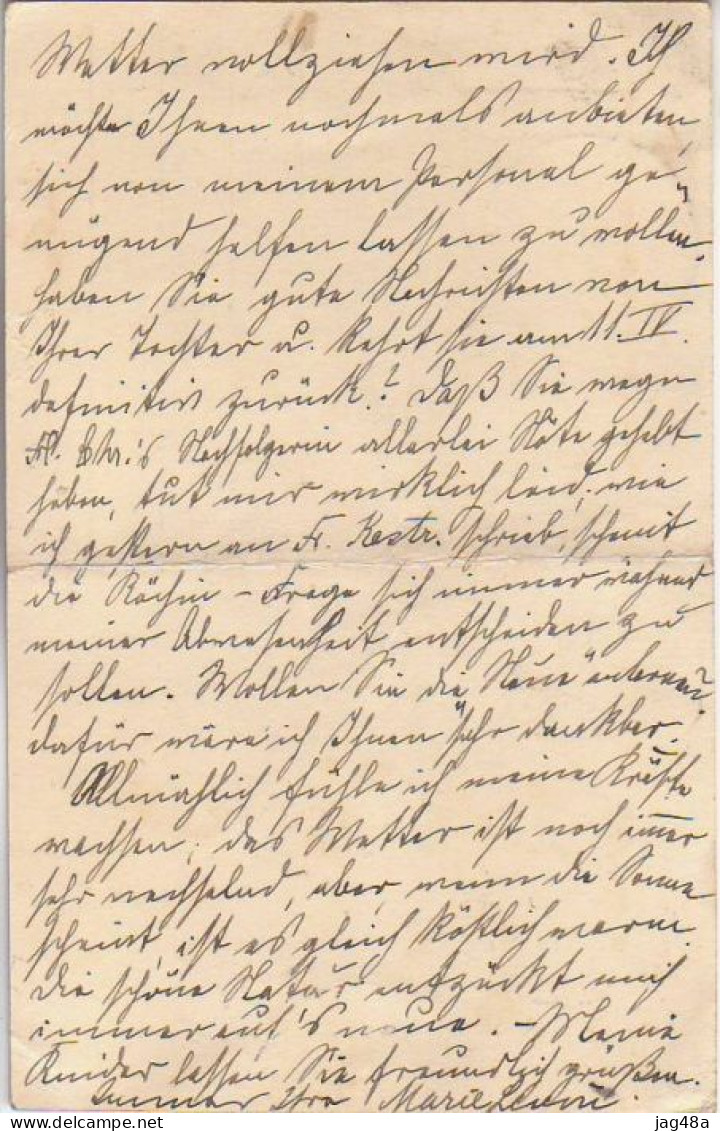 Wetter vollziehen wird. Ich
möchte Ihnen nochmals anbieten,
sich von meinem Personal ge-
nügend helfen lassen zu wollen.
Haben Sie gute Nachrichten von
Ihrer Tochter u. kehrt sie am 11. IV.
definitiv zurück? Daß Sie wegen
Nachfolgerin allerlei Nöte gehabt
haben, tut mir wirklich leid; wie
ich gestern an Fr. Kestr. schrieb, scheint
die Köchin-Frage sich immer während
meiner Abwesenheit entscheiden zu
sollen. Wollen Sie die "Neue"
dafür wäre ich Ihnen sehr dankbar.
Allmählich fühle ich meine Kräfte
wachsen; das Wetter ist noch immer
sehr wechselnd, aber, wenn die Sonne
scheint, ist es gleich köstlich warm.
Die schöne Natur entzückt mich
immer auf's neue. - Meine
Kinder lassen Sie freundlich grüßen.
Immer Ihre Marie
jag48a